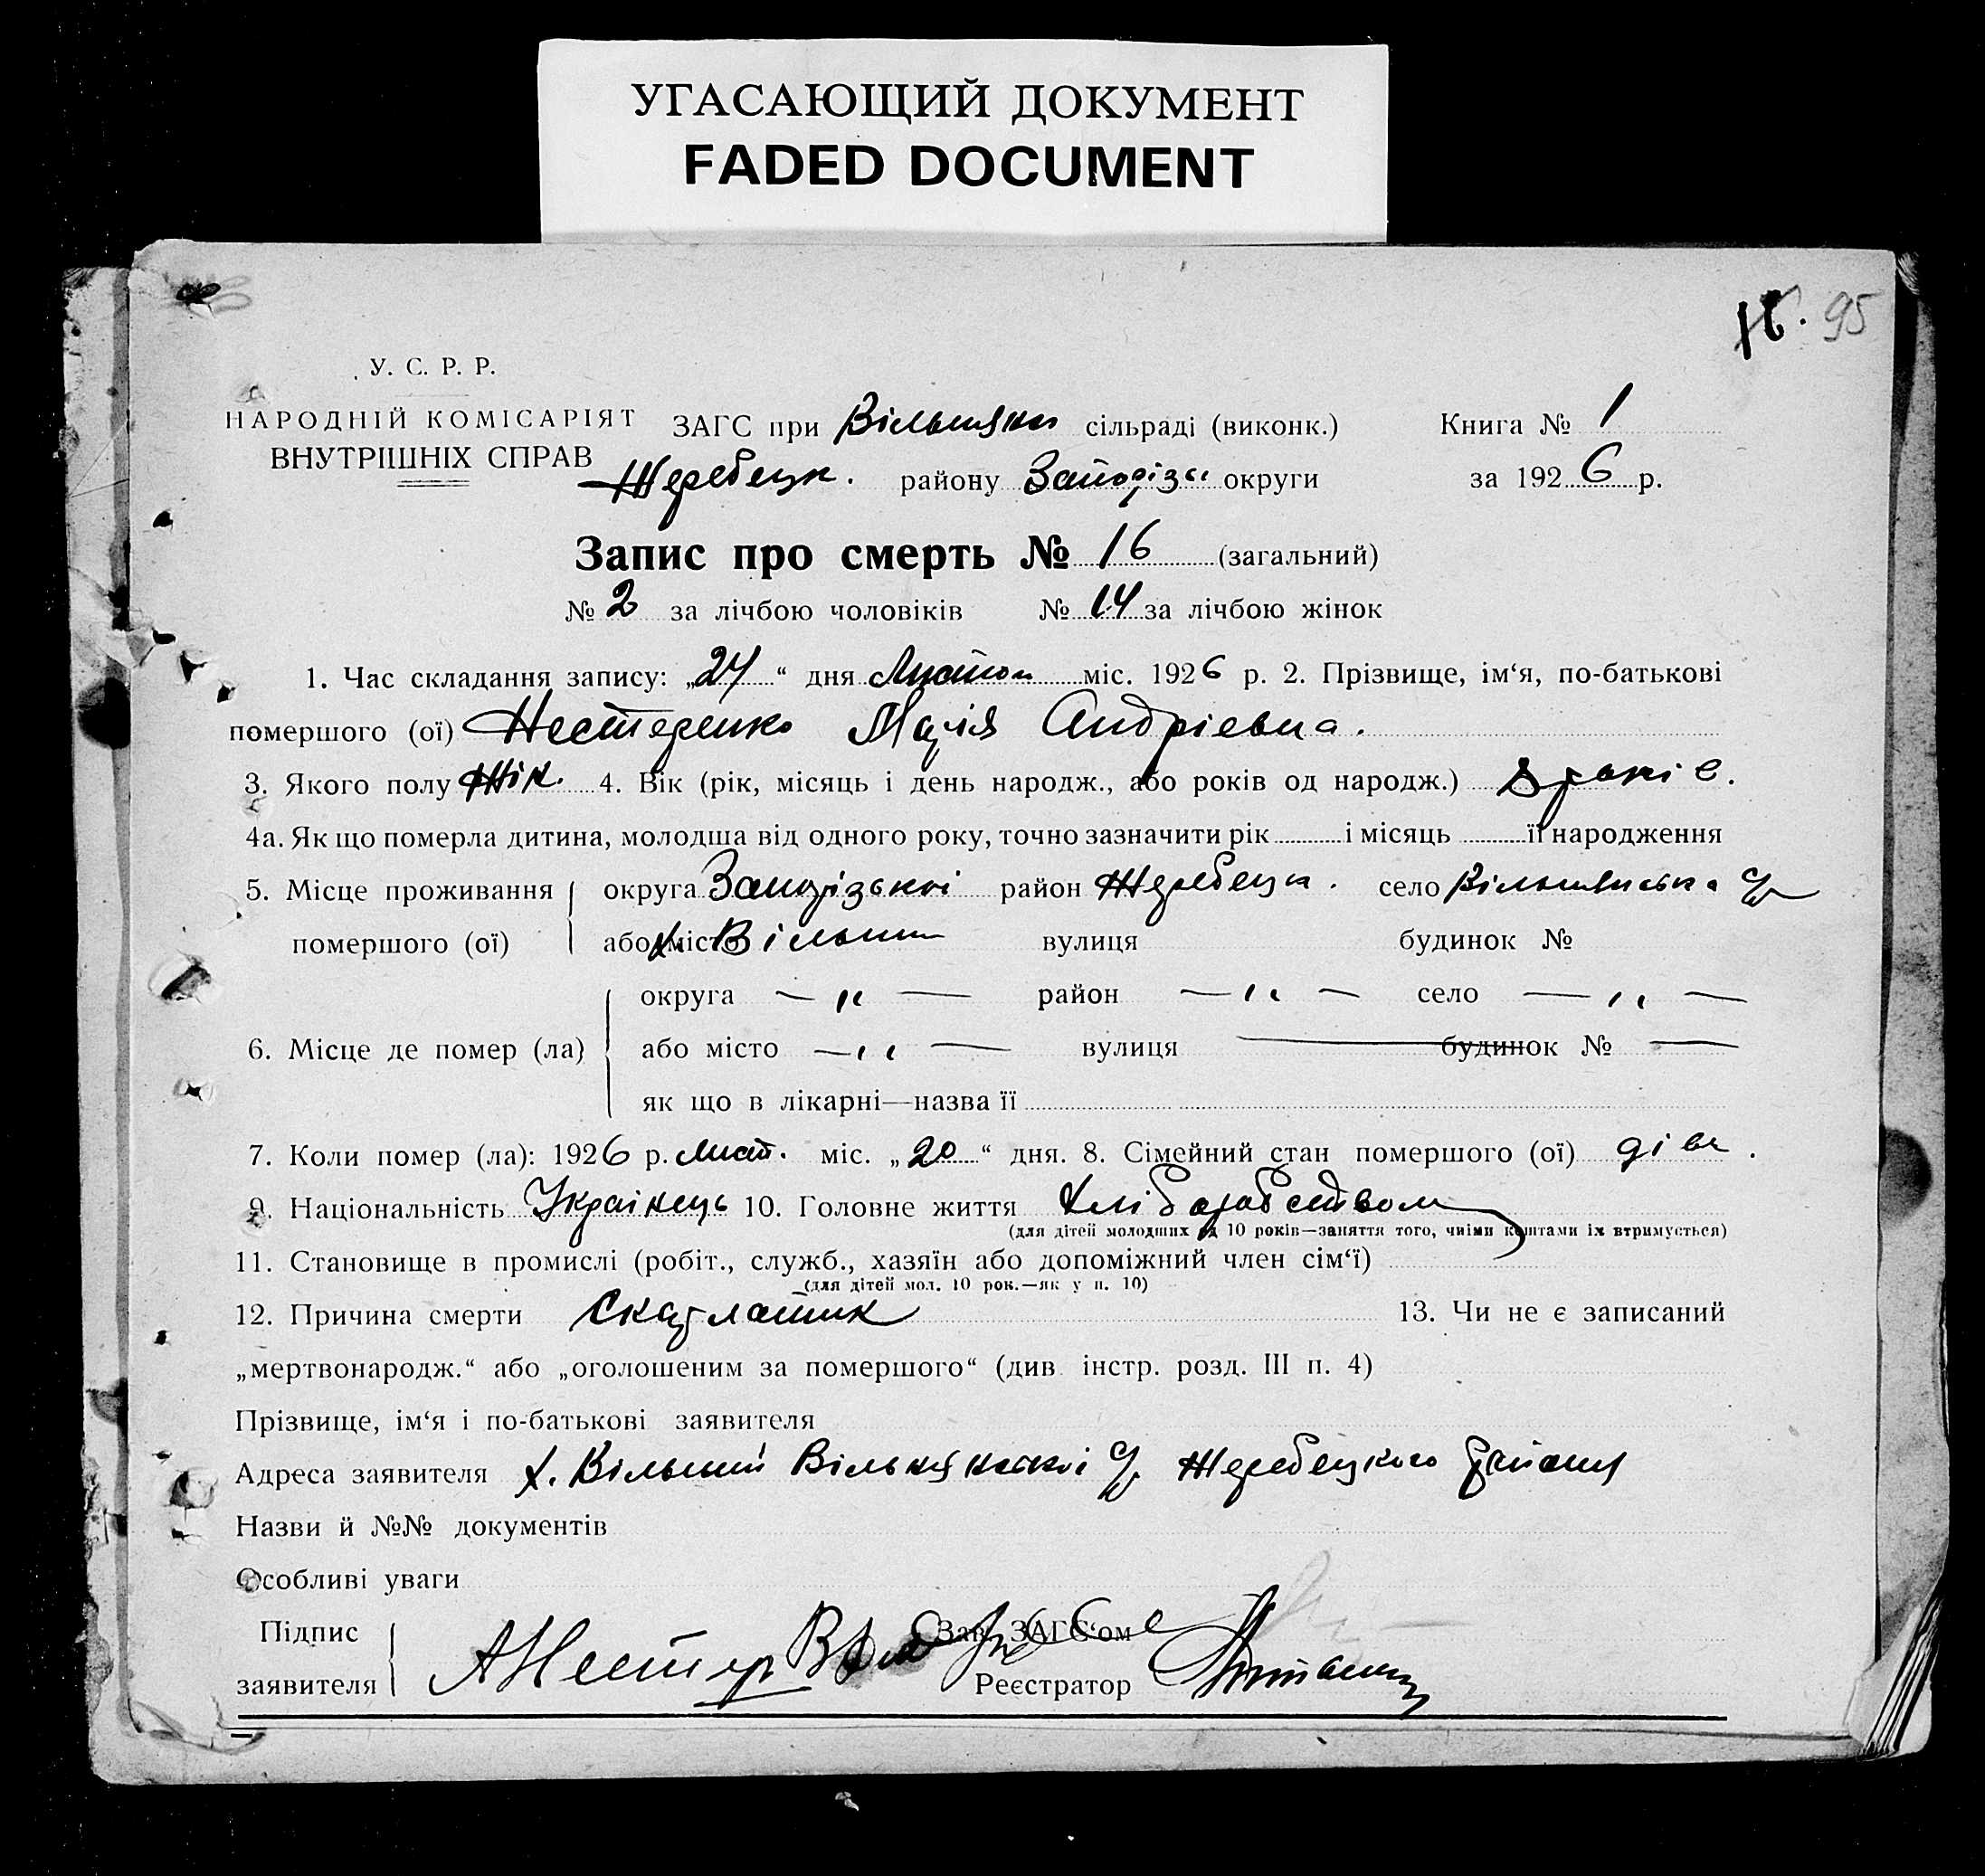 УГАСАЮЩИЙ ДОКУМЕНТ
FADED DOCUMENT
95
У. С. Р. Р.
НАРОДНІЙ КОМІСАРІЯТ
ВНУТРІШНІХ СПРАВ
ЗАГС при сільраді (виконк.) Книга № 1
Жеребецк. району Запоріз округи за 1926 р.
Запис про смерть № 16 (загальний)
№ 2 за лічбою чоловіків № 14 за лічбою жінок
1. Час складання запису: „24“ дня Листоп міс. 1926 р. 2. Прізвище, ім‘я, по-батькові
помершого (ої) Нестеренко Марія Андріевна.
3. Якого полу Жін. 4. Вік (рік, місяць і день народж., або років од народж.) 8 років.
4а. Як що померла дитина, молодша від одного року, точно зазначити рік і місяць її народження
5. Місце проживання округа Запорізькоі район Жеребецк. село
помершого (ої) або місто х. Вільний вулиця будинок №
округа — „ — район — „ — село — „ —
6. Місце де помер (ла) або місто — „ — вулиця — будинок № —
як що в лікарні—назва її
7. Коли помер (ла): 1926 р. лист. міс. „20“ дня. 8. Сімейний стан помершого (ої) дівч.
9. Національність Украінець 10. Головне життя Хліборобством
(для дітей молодших од 10 років—заняття того, чиїми коштами їх втримується)
11. Становище в промислі (робіт., служб., хазяїн або допоміжний член сім‘ї)
(для дітей мол. 10 рок.—як у п. 10)
12. Причина смерти Скарлатик 13. Чи не є записаний
„мертвонародж.“ або „оголошеним за помершого“ (див інстр. розд. III п. 4)
Прізвище, ім‘я і по-батькові заявителя
Адреса заявителя х. Вільний Жеребецкого району
Назви й №№ документів
Особливі уваги
Підпис Зав. ЗАГС‘ом
заявителя АНестер Реєстратор